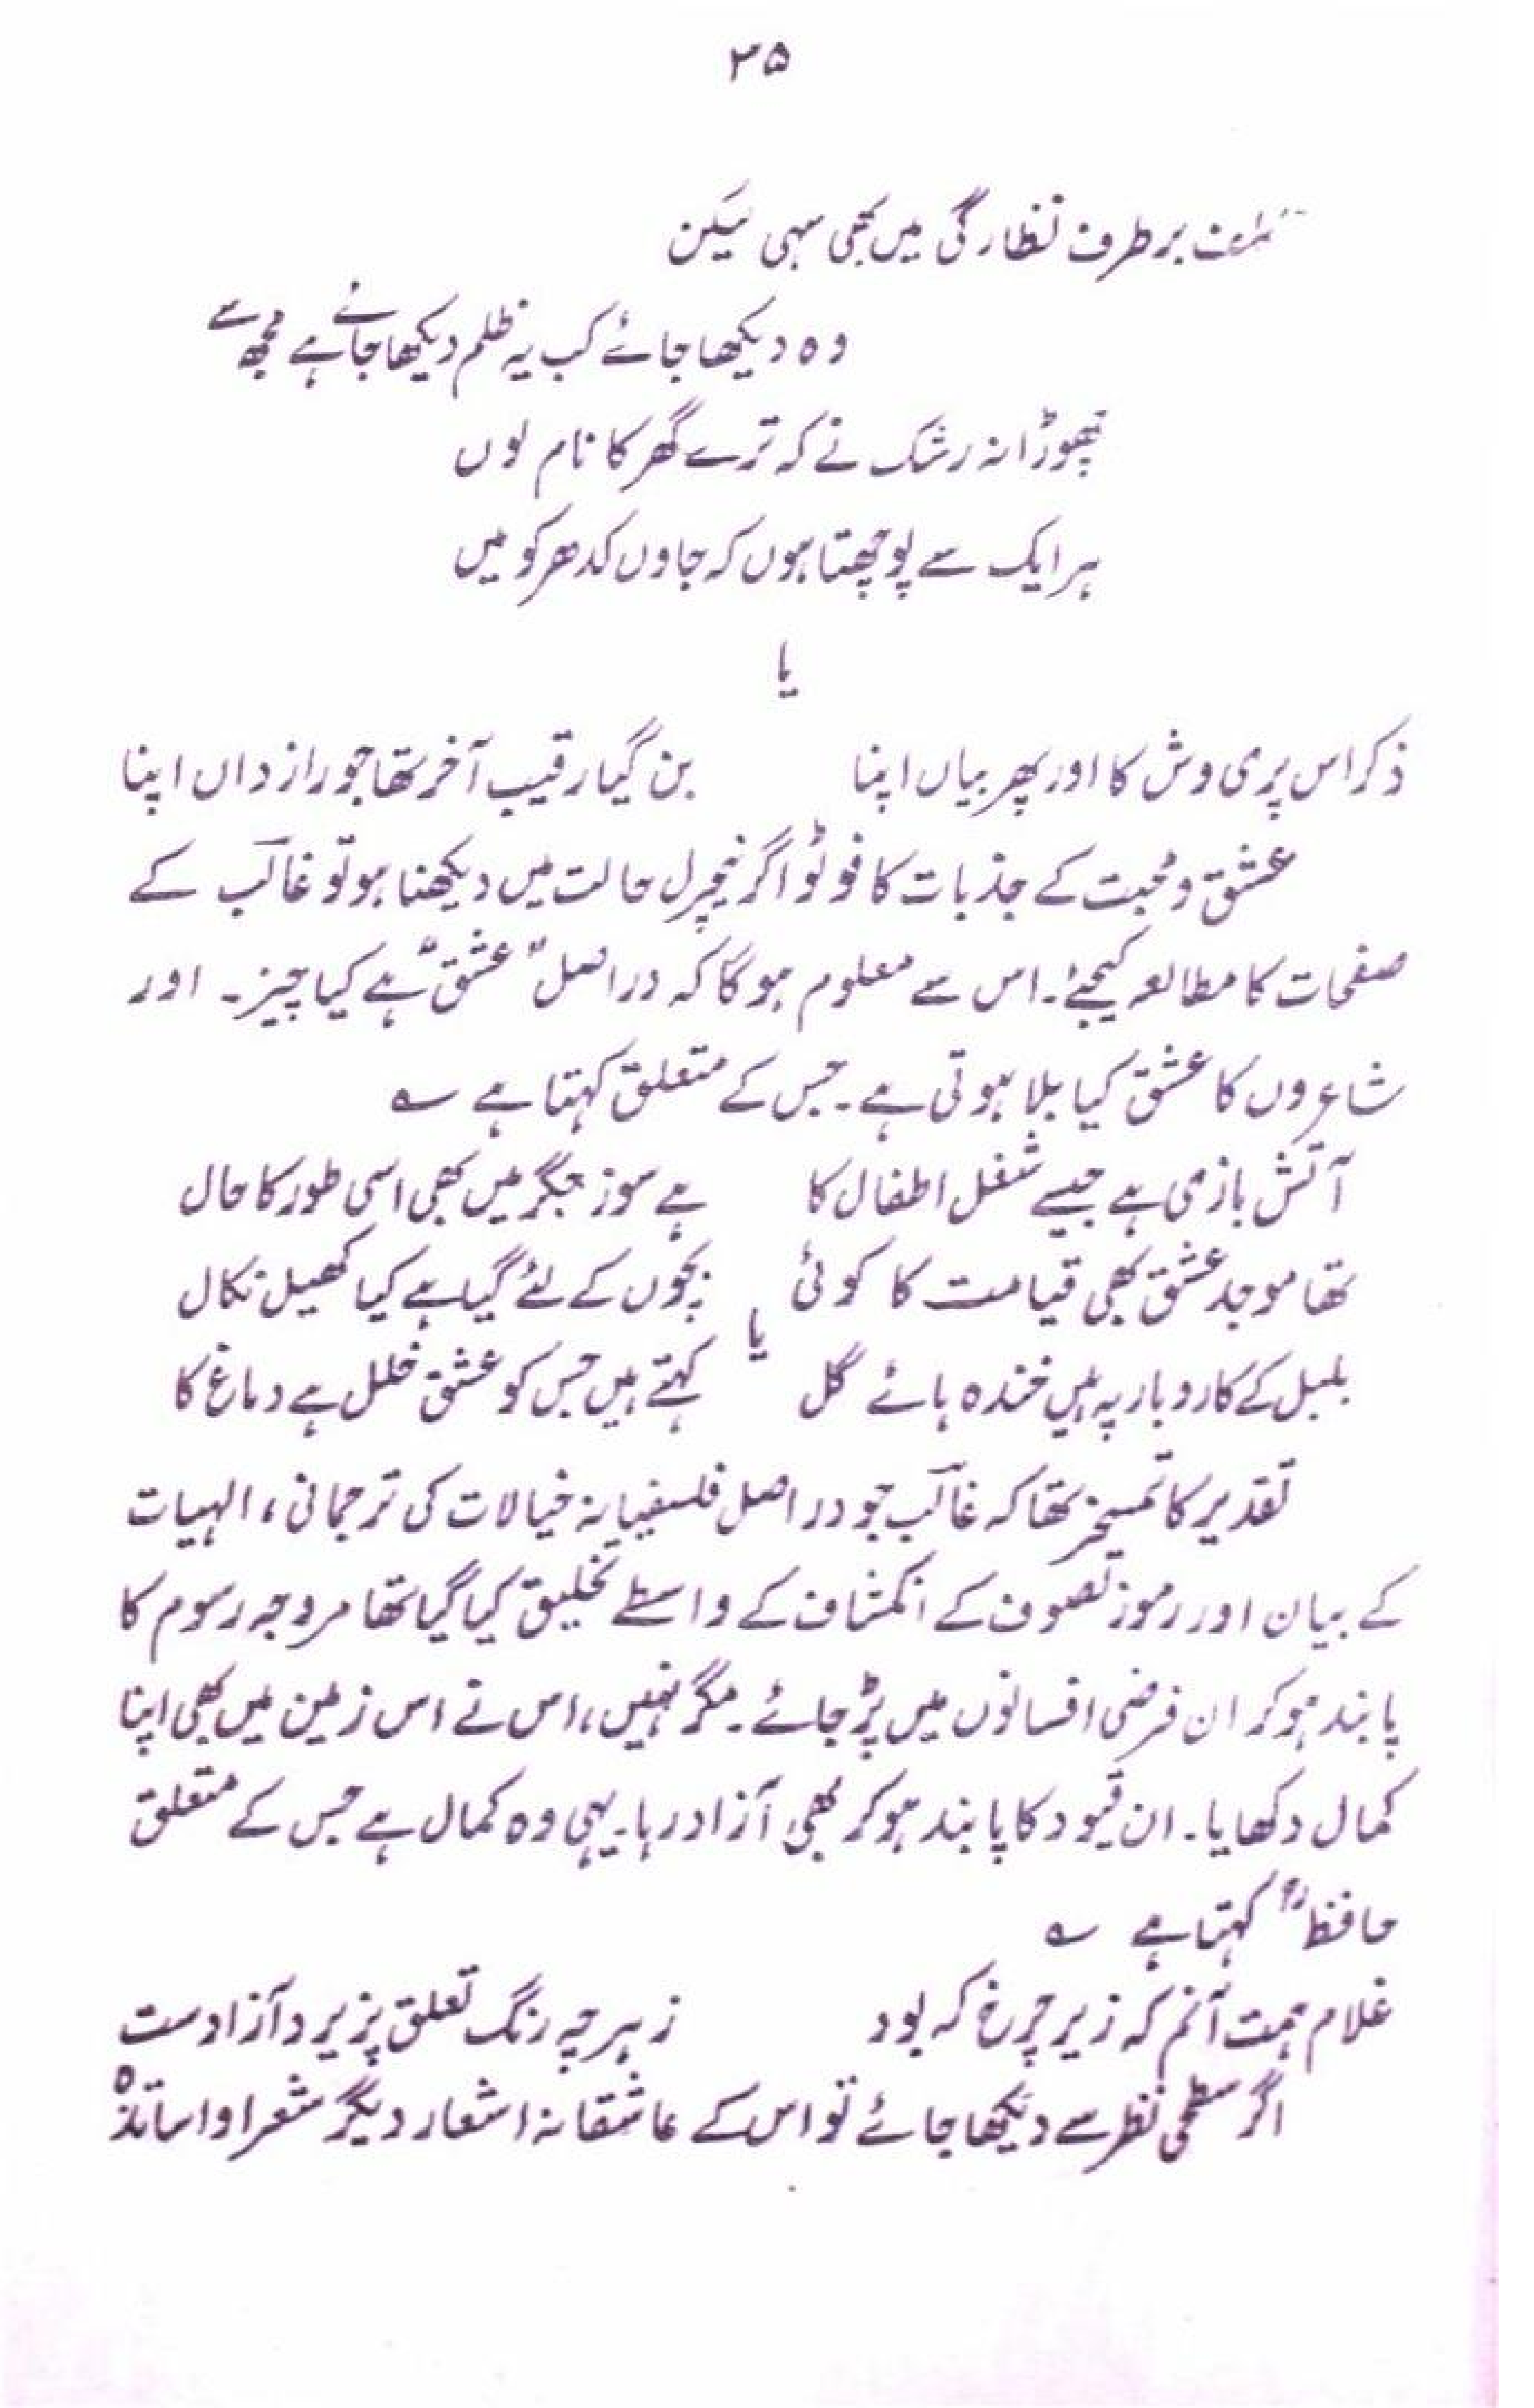 ۲۵
برطرف نظارگی میں بھی سہی لیکن
وہ دیکھا جائے کب یہ ظلم دیکھا جائے ہے مجھ سے
چھوڑا نہ رشک نے کہ ترے گھر کا نام لوں
ہر ایک سے پوچھتا ہوں کہ جاوں کدھر کو میں
یا
ذکر اس پری وش کا اور پھر بیاں اپنا بن گیا رقیب آخر تھا جو رازداں اپنا
عشق و محبت کے جذبات کا فوٹو اگر نیچرل حالت میں دیکھنا ہو تو غالب کے
صفحات کا مطالعہ کیجئے۔ اس سے معلوم ہوگا کہ دراصل "عشق" ہے کیا چیز۔ اور
شاعروں کا عشق کیا بلا ہوتی ہے۔ جس کے متعلق کہتا ہے ؎
آتش بازی ہے جیسے شغل اطفال کا ہے سوز جگر میں بھی اسی طور کا حال
تھا موجد عشق بھی قیامت کا کوئی بچوں کے لئے گیا ہے کیا کھیل نکال
یا
بلبل کے کاروبار پہ ہیں خندہ ہائے گل کہتے ہیں جس کو عشق خلل ہے دماغ کا
تقدیر کا تمسخر تھا کہ غالب جو دراصل فلسفیانہ خیالات کی ترجمانی، الہیات
کے بیان اور رموز تصوف کے انکشاف کے واسطے تخلیق کیا گیا تھا مروجہ رسوم کا
پابند ہوکر ان فرضی افسانوں میں پڑ جائے۔ مگر نہیں، اس نے اس زمین میں بھی اپنا
کمال دکھایا۔ ان قیود کا پابند ہوکر بھی آزاد رہا۔ یہی وہ کمال ہے جس کے متعلق
حافظؒ کہتا ہے ؎
غلام ہمت آنم کہ زیر چرخ کبود زہرچہ رنگ تعلق پزیرد آزادست
اگر سطحی نظر سے دیکھا جائے تو اس کے عاشقانہ اشعار دیگر شعرا و اساتذہ